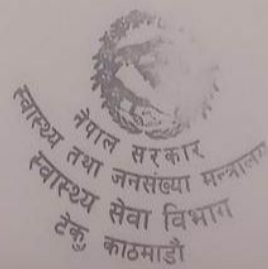 नेपाल सरकार
स्वास्थ्य तथा जनसंख्या मन्त्रालय
स्वास्थ्य सेवा विभाग
टेकु, काठमाडौं